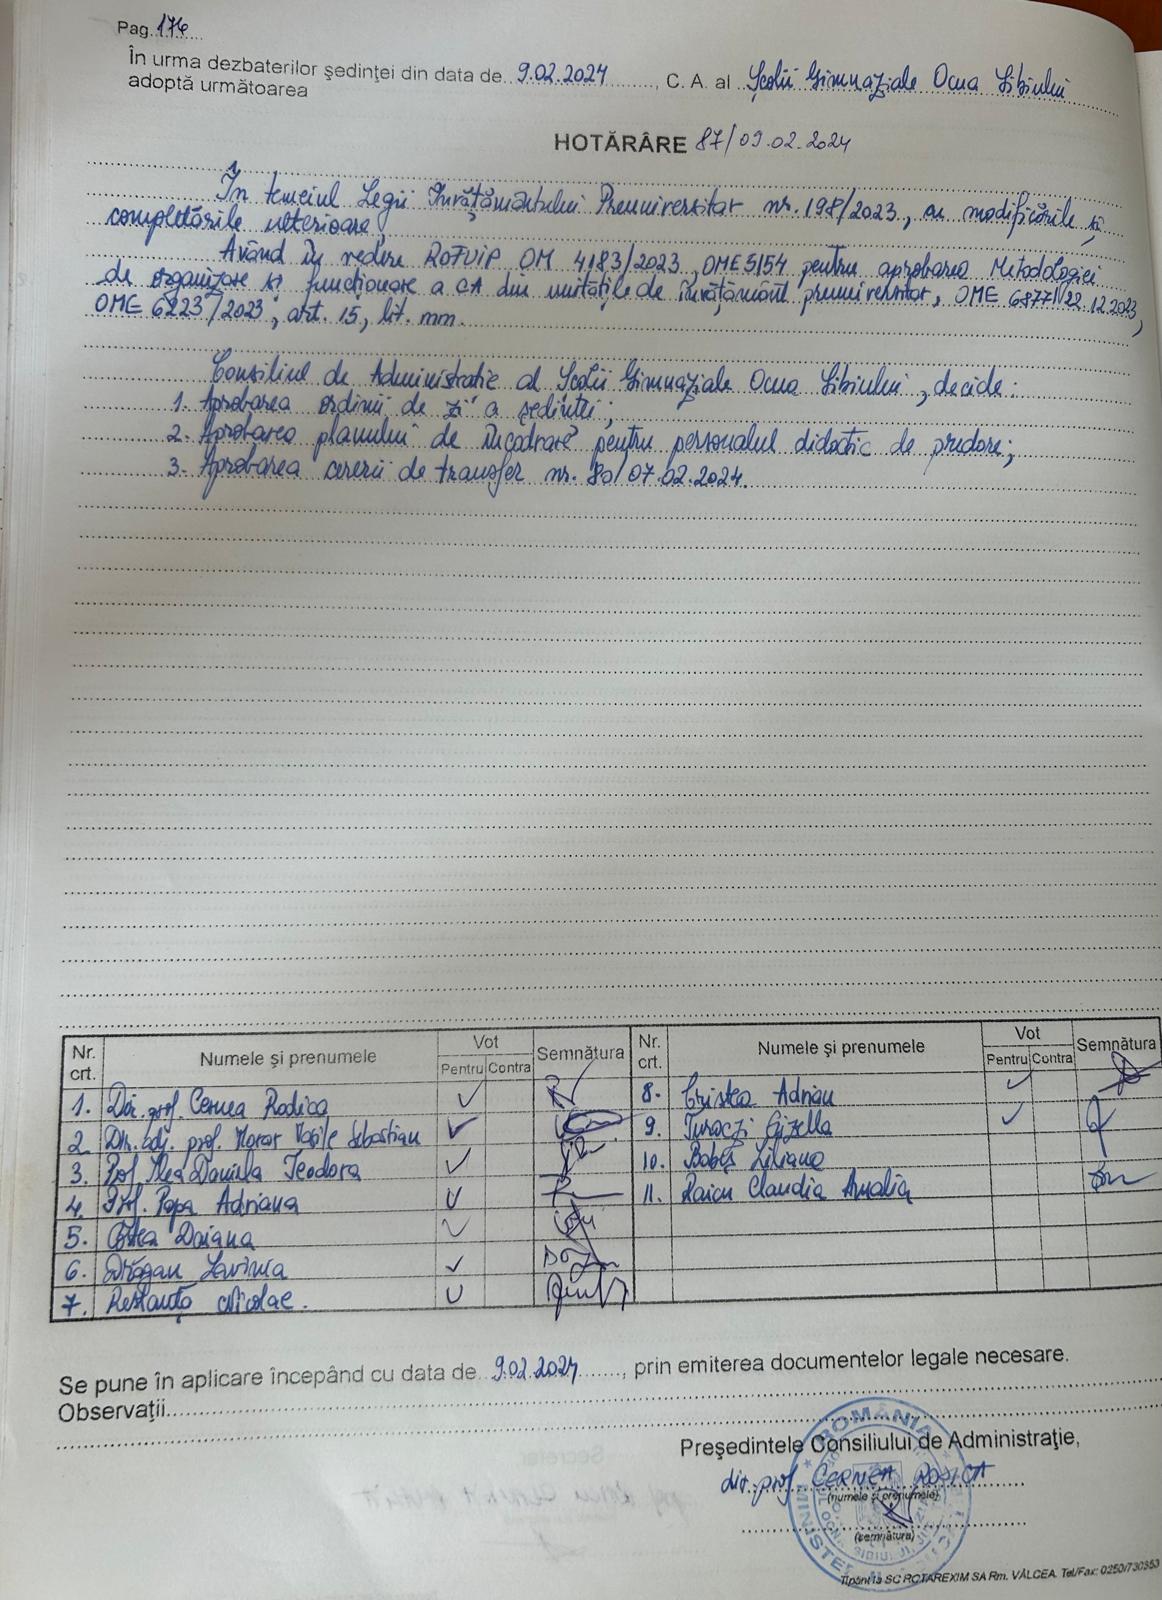 Pag. 176
În urma dezbaterilor şedinţei din data de 9.02.2024, C. A. al Școlii Gimnaziale Ocna Sibiului
adoptă următoarea
HOTĂRÂRE 87/09.02.2024
În temeiul Legii Învățământului Preuniversitar nr. 198/2023, cu modificările și
completările ulterioare,
Având în vedere ROFUIP OM 4183/2023, OME 5154 pentru aprobarea Metodologiei
de organizare și funcționare a CA din unitățile de învățământ preuniversitar, OME 6877/22.12.2023,
OME 6223/2023, art. 15, lit. mm.
Consiliul de Administrație al Școlii Gimnaziale Ocna Sibiului, decide:
1. Aprobarea ordinii de zi a ședinței;
2. Aprobarea planului de încadrare pentru personalul didactic de predare;
3. Aprobarea cererii de transfer nr. 80/07.02.2024.
Nr. crt. Numele şi prenumele Vot Pentru Contra Semnătura Nr. crt. Numele şi prenumele Vot Pentru Contra Semnătura
1. Dir. prof. Cernea Rodica 8. Cristea Adrian
2. Dir. adj. prof. Morar Vasile Sebastian 9. Turaczi Gizella
3. Prof. Daniela Teodora 10. Babeș Liliana
4. Prof. Popa Adriana 11. Raicu Claudia Amalia
5. Daiana
6. Drăgan Lavinia
7. Nicolae.
Se pune în aplicare începând cu data de 9.02.2024, prin emiterea documentelor legale necesare.
Observaţii
Preşedintele Consiliului de Administraţie,
dir. prof. CERNEA RODICA
(numele şi prenumele)
(semnătura)
ROMÂNIA
Tipărit la SC ROTAREXIM SA Rm. VÂLCEA. Tel/Fax: 0250/730353